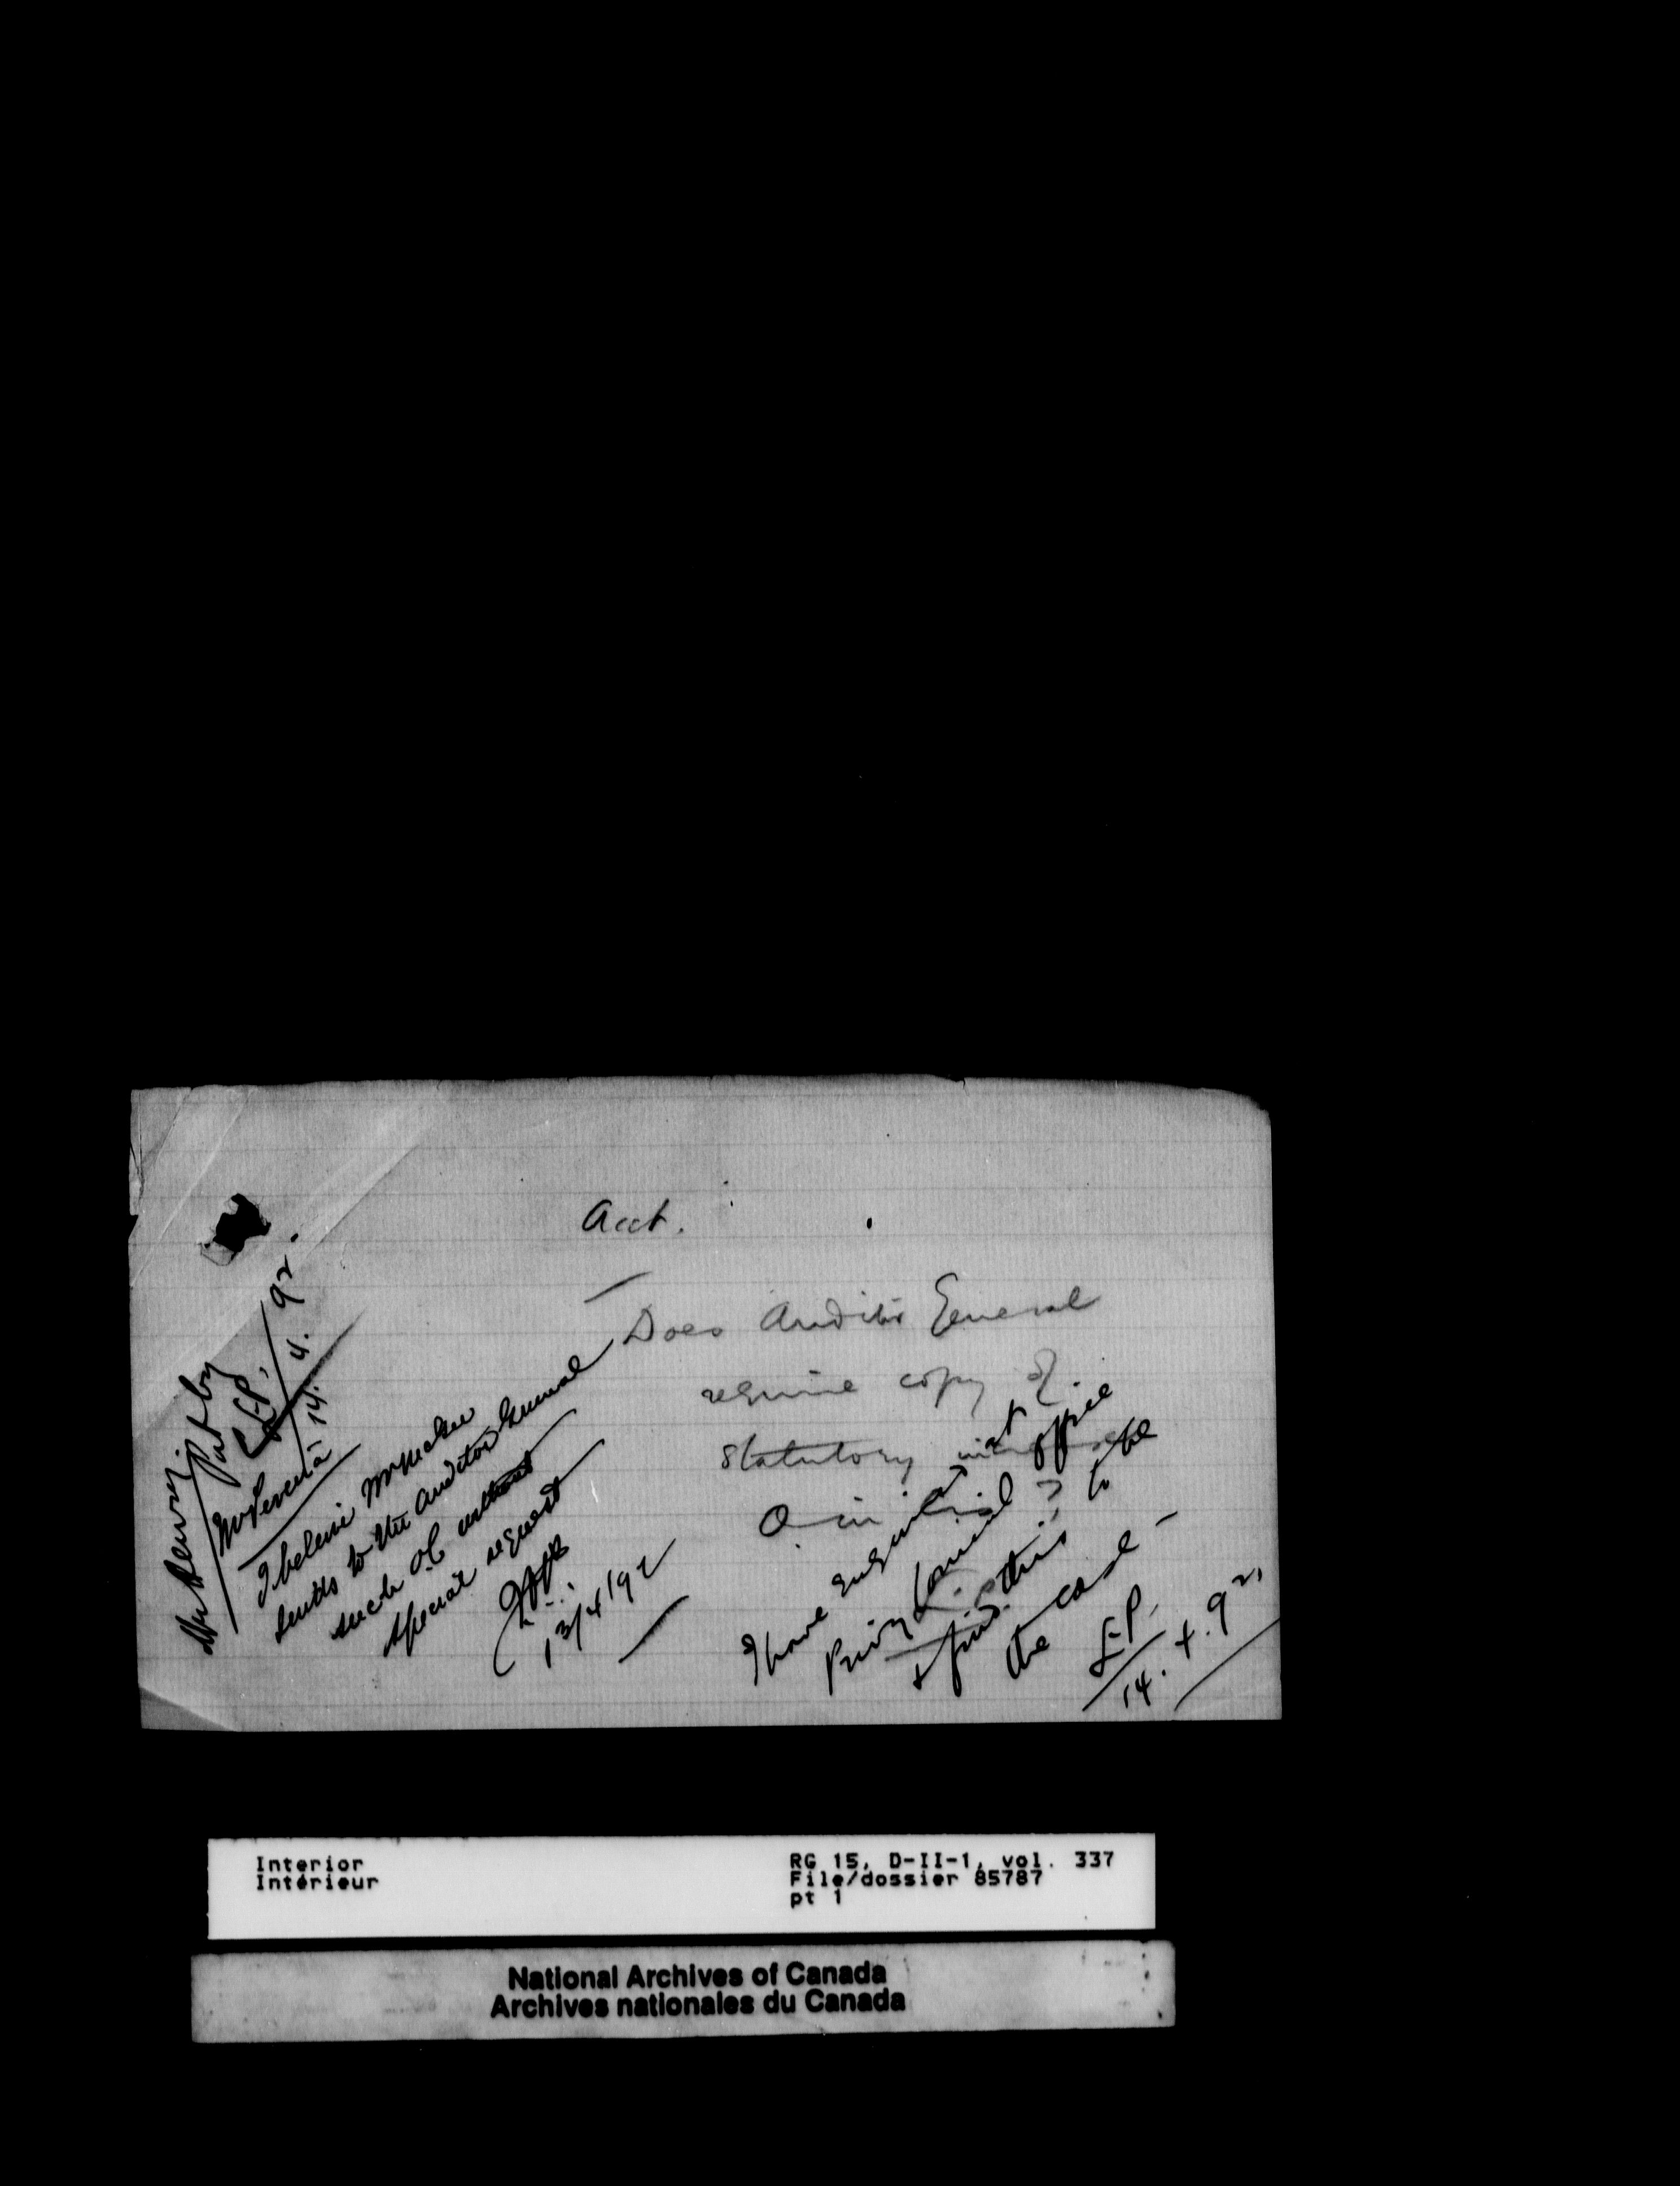 Acct.
Does Auditor General
require copy of
statutory increase
O in C
I believe Mr McGee
sends to the Auditor General
such OC without
special request
13/4/92
I have enquired at
Privy Council office
& find this to be
the case -
L.P.
14.4.92.
Put by
L.P.
14.4.92.
Interior
Intérieur
RG 15, D-II-1, vol. 337
File/dossier 85787
pt 1
National Archives of Canada
Archives nationales du Canada